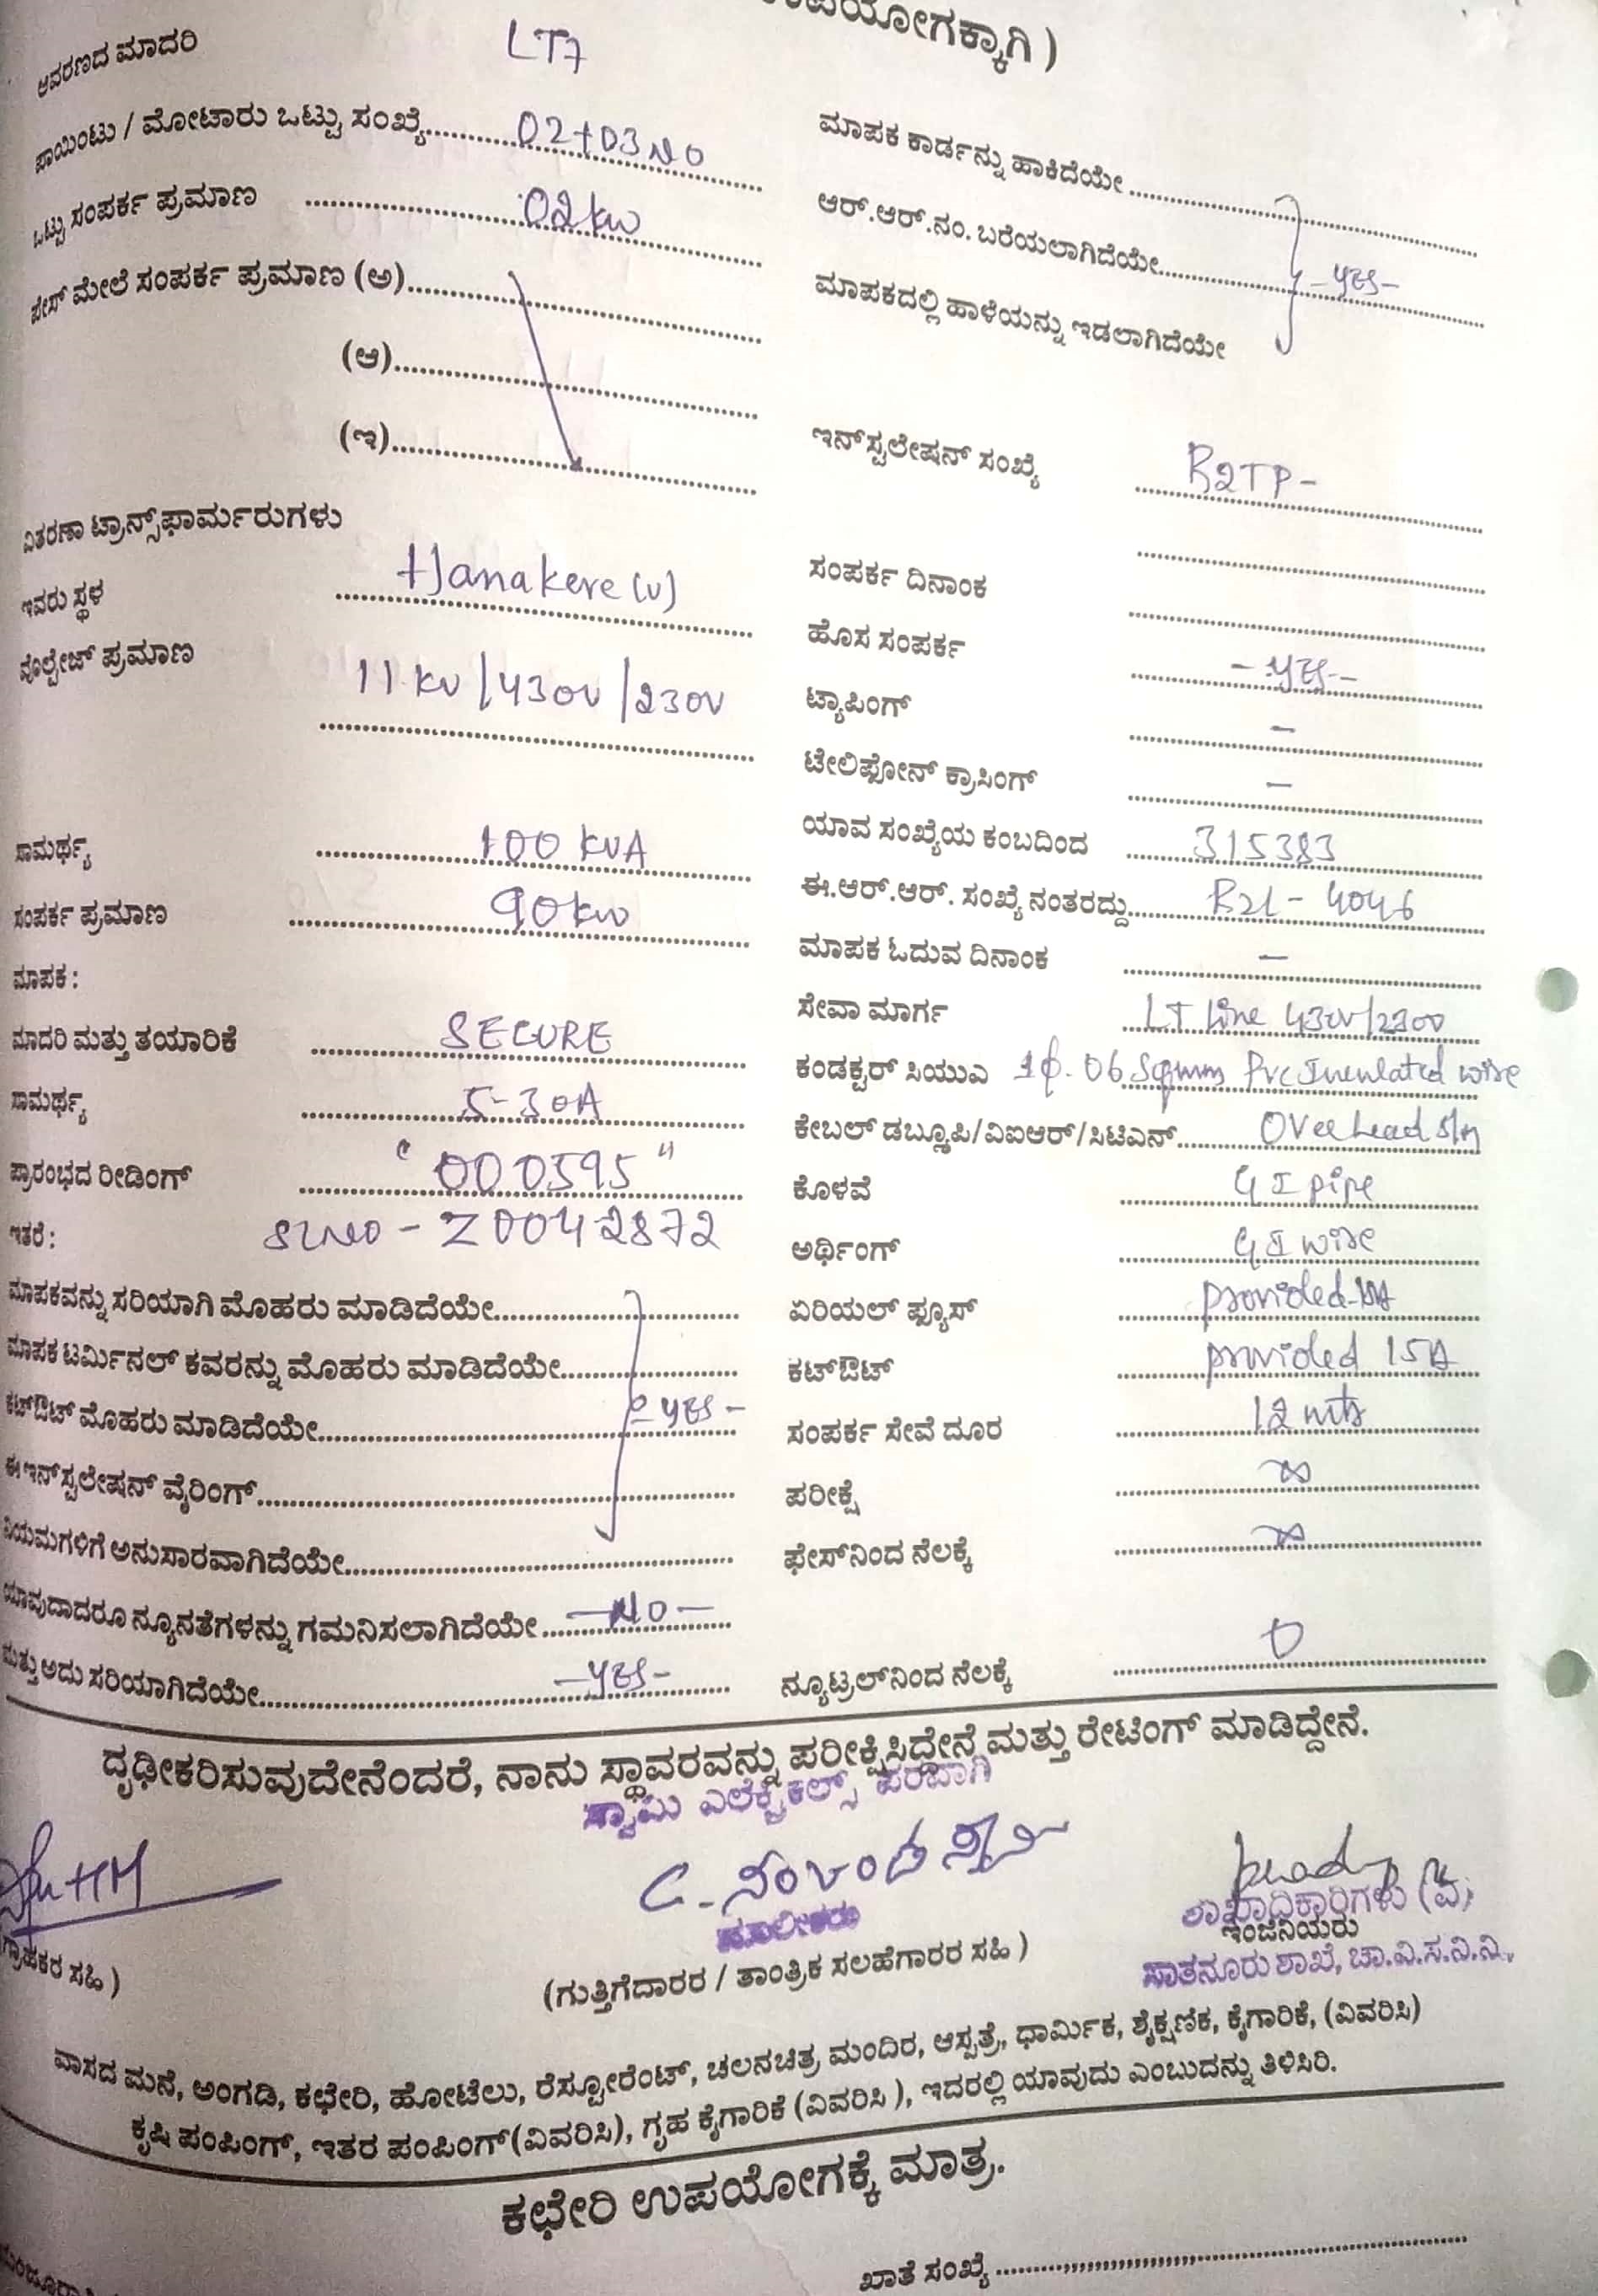 ಉಪಯೋಗಕ್ಕಾಗಿ )
ಆವರಣದ ಮಾದರಿ LT7
ಪಾಯಿಂಟು / ಮೋಟಾರು ಒಟ್ಟು ಸಂಖ್ಯೆ 02+03 NO
ಒಟ್ಟು ಸಂಪರ್ಕ ಪ್ರಮಾಣ 02kw
ಫೇಸ್ ಮೇಲೆ ಸಂಪರ್ಕ ಪ್ರಮಾಣ (ಅ)
(ಆ)
(ಇ)
ವಿತರಣಾ ಟ್ರಾನ್ಸ್‌ಫಾರ್ಮರುಗಳು
ಇವರು ಸ್ಥಳ Hanakere (v)
ವೋಲ್ಟೇಜ್ ಪ್ರಮಾಣ 11 kv/430v/230v
ಸಾಮರ್ಥ್ಯ 100 KVA
ಸಂಪರ್ಕ ಪ್ರಮಾಣ 90kw
ಮಾಪಕ :
ಮಾದರಿ ಮತ್ತು ತಯಾರಿಕೆ SECURE
ಸಾಮರ್ಥ್ಯ 5-30A
ಪ್ರಾರಂಭದ ರೀಡಿಂಗ್ "000595"
ಇತರೆ : SLNO - Z0042872
ಮಾಪಕವನ್ನು ಸರಿಯಾಗಿ ಮೊಹರು ಮಾಡಿದೆಯೇ
ಮಾಪಕ ಟರ್ಮಿನಲ್ ಕವರನ್ನು ಮೊಹರು ಮಾಡಿದೆಯೇ
ಕಟ್‌ಔಟ್ ಮೊಹರು ಮಾಡಿದೆಯೇ - YES -
ಈ ಇನ್‌ಸ್ಟಲೇಷನ್ ವೈರಿಂಗ್
ನಿಯಮಗಳಿಗೆ ಅನುಸಾರವಾಗಿದೆಯೇ
ಯಾವುದಾದರೂ ನ್ಯೂನತೆಗಳನ್ನು ಗಮನಿಸಲಾಗಿದೆಯೇ - NO -
ಮತ್ತು ಅದು ಸರಿಯಾಗಿದೆಯೇ - YES -
ಮಾಪಕ ಕಾರ್ಡನ್ನು ಹಾಕಿದೆಯೇ
ಆರ್.ಆರ್.ನಂ. ಬರೆಯಲಾಗಿದೆಯೇ - YES -
ಮಾಪಕದಲ್ಲಿ ಹಾಳೆಯನ್ನು ಇಡಲಾಗಿದೆಯೇ
ಇನ್‌ಸ್ಟಲೇಷನ್ ಸಂಖ್ಯೆ B2TP -
ಸಂಪರ್ಕ ದಿನಾಂಕ
ಹೊಸ ಸಂಪರ್ಕ - YES -
ಟ್ಯಾಪಿಂಗ್ -
ಟೇಲಿಫೋನ್ ಕ್ರಾಸಿಂಗ್ -
ಯಾವ ಸಂಖ್ಯೆಯ ಕಂಬದಿಂದ 315383
ಈ.ಆರ್.ಆರ್. ಸಂಖ್ಯೆ ನಂತರದ್ದು B2L - 4046
ಮಾಪಕ ಓದುವ ದಿನಾಂಕ -
ಸೇವಾ ಮಾರ್ಗ LT Line 430v/230v
ಕಂಡಕ್ಟರ್ ಸಿಯುಎ 1φ. 06 Sqmm PVC Insulated wire
ಕೇಬಲ್ ಡಬ್ಲೂಪಿ/ವಿಐಆರ್/ಸಿಟಿಎನ್ Over head
ಕೊಳವೆ GI pipe
ಅರ್ಥಿಂಗ್ GI wire
ಏರಿಯಲ್ ಫ್ಯೂಸ್ provided
ಕಟ್‌ಔಟ್ provided 15A
ಸಂಪರ್ಕ ಸೇವೆ ದೂರ 12 mts
ಪರೀಕ್ಷೆ ∞
ಫೇಸ್‌ನಿಂದ ನೆಲಕ್ಕೆ ∞
ನ್ಯೂಟ್ರಲ್‌ನಿಂದ ನೆಲಕ್ಕೆ 0
ದೃಢೀಕರಿಸುವುದೇನೆಂದರೆ, ನಾನು ಸ್ಥಾವರವನ್ನು ಪರೀಕ್ಷಿಸಿದ್ದೇನೆ ಮತ್ತು ರೇಟಿಂಗ್ ಮಾಡಿದ್ದೇನೆ.
ಸ್ವಾಮಿ ಎಲೆಕ್ಟ್ರಿಕಲ್ಸ್ ಪರವಾಗಿ
ಮಾಲೀಕರು
ಶಾಖಾಧಿಕಾರಿಗಳು (ವಿ)
ಇಂಜಿನಿಯರು
ಸಾತನೂರು ಶಾಖೆ, ಚಾ.ವಿ.ಸ.ನಿ.ನಿ.
ಗ್ರಾಹಕರ ಸಹಿ )
(ಗುತ್ತಿಗೆದಾರರ / ತಾಂತ್ರಿಕ ಸಲಹೆಗಾರರ ಸಹಿ )
ವಾಸದ ಮನೆ, ಅಂಗಡಿ, ಕಛೇರಿ, ಹೋಟೆಲು, ರೆಸ್ಟೋರೆಂಟ್, ಚಲನಚಿತ್ರ ಮಂದಿರ, ಆಸ್ಪತ್ರೆ, ಧಾರ್ಮಿಕ, ಶೈಕ್ಷಣಿಕ, ಕೈಗಾರಿಕೆ, (ವಿವರಿಸಿ)
ಕೃಷಿ ಪಂಪಿಂಗ್, ಇತರ ಪಂಪಿಂಗ್(ವಿವರಿಸಿ), ಗೃಹ ಕೈಗಾರಿಕೆ (ವಿವರಿಸಿ ), ಇದರಲ್ಲಿ ಯಾವುದು ಎಂಬುದನ್ನು ತಿಳಿಸಿರಿ.
ಕಛೇರಿ ಉಪಯೋಗಕ್ಕೆ ಮಾತ್ರ.
ಖಾತೆ ಸಂಖ್ಯೆ